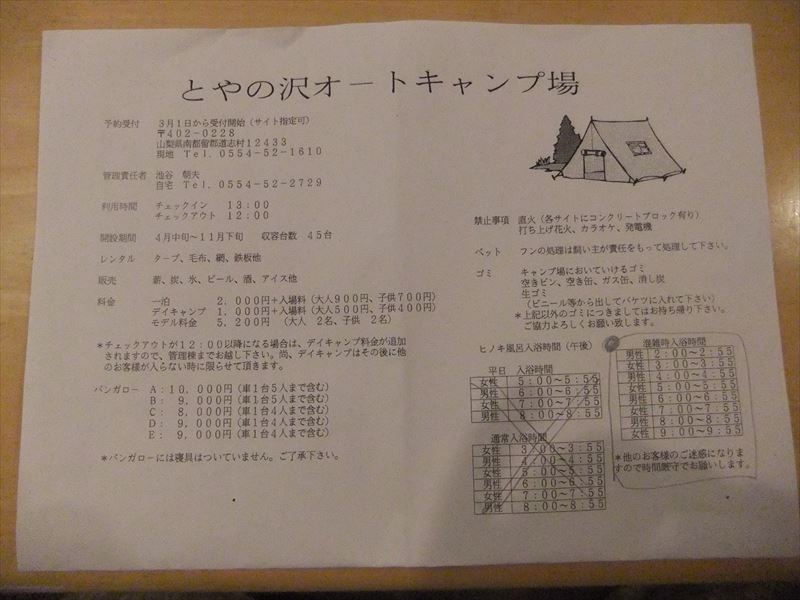 とやの沢オートキャンプ場
予約受付　３月１日から受付開始（サイト指定可）
〒４０２－０２２８
山梨県南都留郡道志村１２４３３
現地　Ｔｅｌ．０５５４－５２－１６１０
管理責任者　池谷　朝夫
自宅　Ｔｅｌ．０５５４－５２－２７２９
利用時間　チェックイン　１３：００
チェックアウト　１２：００
開設期間　４月中旬～１１月下旬　収容台数　４５台
レンタル　タープ、毛布、網、鉄板他
販売　薪、炭、氷、ビール、酒、アイス他
料金　一泊　２，０００円＋入場料（大人９００円、子供７００円）
デイキャンプ　１，０００円＋入場料（大人５００円、子供４００円）
モデル料金　５，２００円　（大人　２名、子供　２名）
＊チェックアウトが１２：００以降になる場合は、デイキャンプ料金が追加
されますので、管理棟までお越し下さい。尚、デイキャンプはその後に他
のお客様が入らない時に限らせて頂きます。
バンガロー　Ａ：１０，０００円（車１台５人まで含む）
Ｂ：　９，０００円（車１台５人まで含む）
Ｃ：　８，０００円（車１台４人まで含む）
Ｄ：　９，０００円（車１台４人まで含む）
Ｅ：　９，０００円（車１台４人まで含む）
＊バンガローには寝具はついていません。ご了承下さい。
禁止事項　直火（各サイトにコンクリートブロック有り）
打ち上げ花火、カラオケ、発電機
ペット　フンの処理は飼い主が責任をもって処理して下さい。
ゴミ　キャンプ場においていけるゴミ
空きビン、空き缶、ガス缶、消し炭
生ゴミ
（ビニール等から出してバケツに入れて下さい）
＊上記以外のゴミにつきましてはお持ち帰り下さい。
ご協力よろしくお願い致します。
ヒノキ風呂入浴時間（午後）
平日　入浴時間
女性　５：００～５：５５
男性　６：００～６：５５
女性　７：００～７：５５
男性　８：００～８：５５
通常入浴時間
女性　３：００～３：５５
男性　４：００～４：５５
女性　５：００～５：５５
男性　６：００～６：５５
女性　７：００～７：５５
男性　８：００～８：５５
混雑時入浴時間
男性　２：００～２：５５
女性　３：００～３：５５
男性　４：００～４：５５
女性　５：００～５：５５
男性　６：００～６：５５
女性　７：００～７：５５
男性　８：００～８：５５
女性　９：００～９：５５
＊他のお客様のご迷惑になりま
すので時間厳守でお願いします。